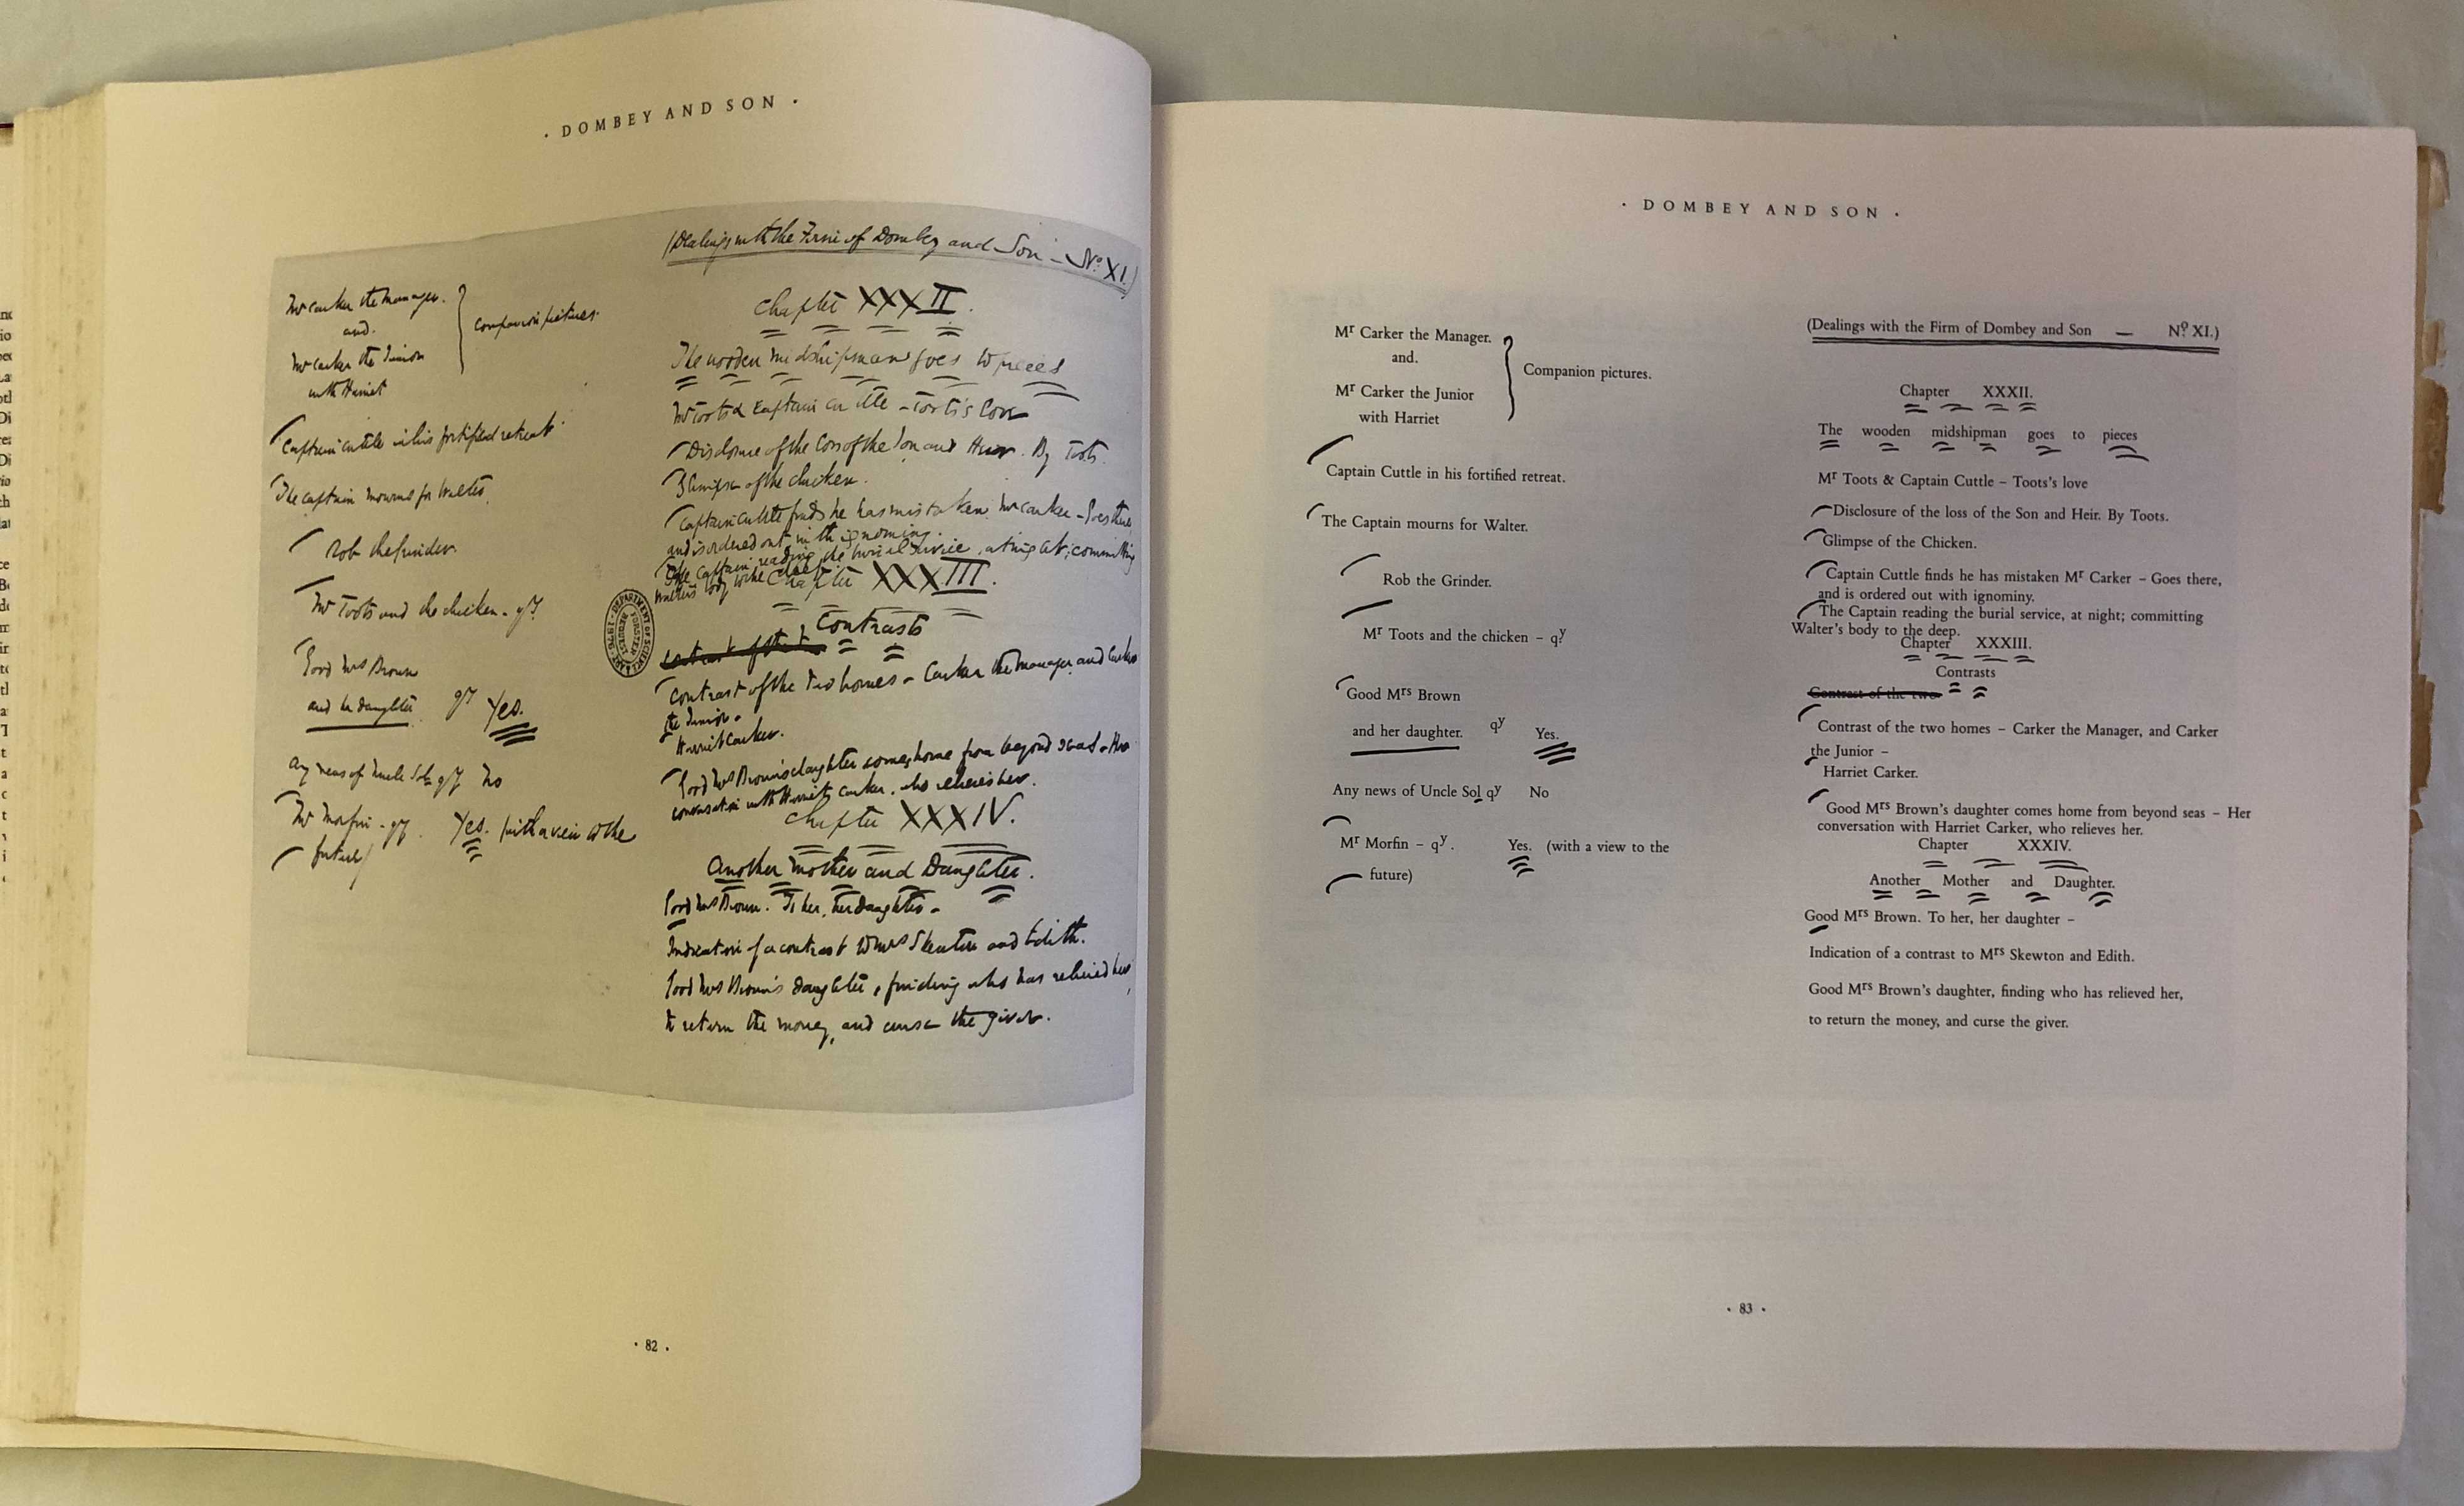 · DOMBEY AND SON ·
(Dealings with the Firm of Dombey and Son – No. XI.)
Mr Carker the Manager.
and.
Mr Carker the Junior
with Harriet
Companion pictures.
Captain Cuttle in his fortified retreat.
The Captain mourns for Walter.
Rob the Grinder.
Mr Toots and the chicken – qy.
Good Mrs Brown
and her daughter. qy Yes.
Any news of Uncle Sol qy No
Mr Morfin – qy. Yes. (with a view to the
future)
Chapter XXXII.
The wooden midshipman goes to pieces
Mr Toots & Captain Cuttle – Toots's love
Disclosure of the loss of the Son and Heir. By Toots.
Glimpse of the chicken.
Captain Cuttle finds he has mistaken Mr Carker – Goes there
and is ordered out with ignominy.
The Captain reading the burial service, at night; committing
Walter's body to the deep.
Chapter XXXIII.
Contrasts
Contrast of the two
Contrast of the two homes – Carker the Manager, and Carker
the Junior –
Harriet Carker.
Good Mrs Brown's daughter comes home from beyond seas – Her
conversation with Harriet Carker, who relieves her.
Chapter XXXIV.
Another Mother and Daughter.
Good Mrs Brown. To her, her daughter –
Indication of a contrast to Mrs Skewton and Edith.
Good Mrs Brown's daughter, finding who has relieved her,
to return the money, and curse the giver.
· 82 ·
· DOMBEY AND SON ·
Mr Carker the Manager.
and.
Mr Carker the Junior
with Harriet
Companion pictures.
Captain Cuttle in his fortified retreat.
The Captain mourns for Walter.
Rob the Grinder.
Mr Toots and the chicken – qy.
Good Mrs Brown
and her daughter. qy Yes.
Any news of Uncle Sol qy No
Mr Morfin – qy. Yes. (with a view to the
future)
(Dealings with the Firm of Dombey and Son — No. XI.)
Chapter XXXII.
The wooden midshipman goes to pieces
Mr Toots & Captain Cuttle – Toots's love
Disclosure of the loss of the Son and Heir. By Toots.
Glimpse of the Chicken.
Captain Cuttle finds he has mistaken Mr Carker – Goes there,
and is ordered out with ignominy.
The Captain reading the burial service, at night; committing
Walter's body to the deep.
Chapter XXXIII.
Contrasts
Contrast of the two
Contrast of the two homes – Carker the Manager, and Carker
the Junior –
Harriet Carker.
Good Mrs Brown's daughter comes home from beyond seas – Her
conversation with Harriet Carker, who relieves her.
Chapter XXXIV.
Another Mother and Daughter.
Good Mrs Brown. To her, her daughter –
Indication of a contrast to Mrs Skewton and Edith.
Good Mrs Brown's daughter, finding who has relieved her,
to return the money, and curse the giver.
· 83 ·